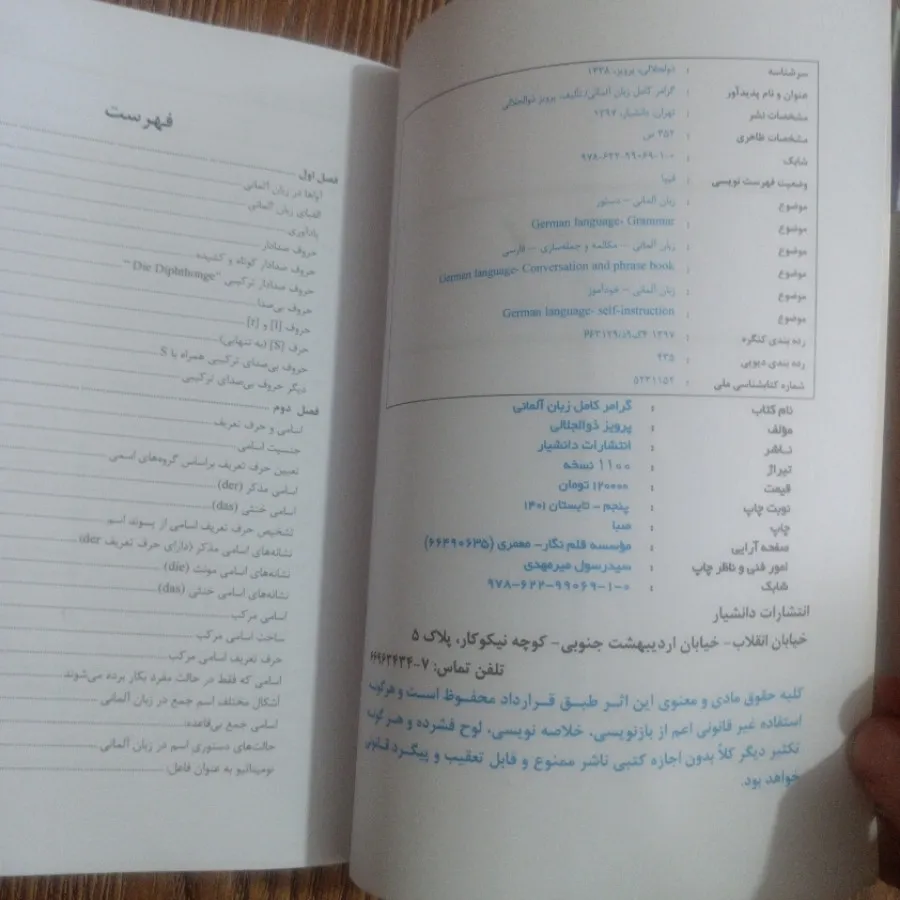 سرشناسه : ذوالجلالی، پرویز، ۱۳۳۸
عنوان و نام پدیدآور : گرامر کامل زبان آلمانی/ تألیف پرویز ذوالجلالی
مشخصات نشر : تهران، دانشیار، ۱۳۹۷
مشخصات ظاهری : ۳۵۲ ص
شابک : ۹۷۸-۶۲۲-۹۹۰۶۹-۱-۰
وضعیت فهرست نویسی : فیپا
موضوع : زبان آلمانی -- دستور
موضوع : German language- Grammar
موضوع : زبان آلمانی -- مکالمه و جمله‌سازی -- فارسی
موضوع : German language- Conversation and phrase book
موضوع : زبان آلمانی -- خودآموز
موضوع : German language- self-instruction
رده بندی کنگره : ۱۳۹۷
رده بندی دیویی : ۴۳۵
شماره کتابشناسی ملی : ۵۲۳۱۱۵۲
نام کتاب : گرامر کامل زبان آلمانی
مؤلف : پرویز ذوالجلالی
ناشر : انتشارات دانشیار
تیراژ : ۱۱۰۰ نسخه
قیمت : ۱۲۰۰۰۰ تومان
نوبت چاپ : پنجم - تابستان ۱۴۰۱
چاپ : صبا
صفحه آرایی : مؤسسه قلم نگار- معمری (۶۶۴۹۰۶۳۵)
امور فنی و ناظر چاپ : سیدرسول میرمهدی
شابک : ۹۷۸-۶۲۲-۹۹۰۶۹-۱-۰
انتشارات دانشیار
خیابان انقلاب- خیابان اردیبهشت جنوبی- کوچه نیکوکار، پلاک ۵
تلفن تماس: ۷-۶۶۹۶۳۴۳۴
کلیه حقوق مادی و معنوی این اثر طبق قرارداد محفوظ است و هرگونه
استفاده غیر قانونی اعم از بازنویسی، خلاصه نویسی، لوح فشرده و هرگونه
تکثیر دیگر کلاً بدون اجازه کتبی ناشر ممنوع و قابل تعقیب و پیگرد قانونی
خواهد بود.
فهرست
فصل اول
آواها در زبان آلمانی
الفبای زبان آلمانی
یادآوری
حروف صدادار
حروف صدادار کوتاه و کشیده
حروف صدادار ترکیبی "Die Diphthonge"
حروف بی‌صدا
حروف [l] و [r]
حرف [S] (به تنهایی)
حروف بی‌صدای ترکیبی همراه با S
دیگر حروف بی‌صدای ترکیبی
فصل دوم
اسامی و حرف تعریف
جنسیت اسامی
تعیین حرف تعریف براساس گروه‌های اسمی
اسامی مذکر (der)
اسامی خنثی (das)
تشخیص حرف تعریف اسامی از پسوند اسم
نشانه‌های اسامی مذکر (دارای حرف تعریف der)
نشانه‌های اسامی مونث (die)
نشانه‌های اسامی خنثی (das)
اسامی مرکب
ساخت اسامی مرکب
حرف تعریف اسامی مرکب
اسامی که فقط در حالت مفرد بکار برده می‌شوند
اَشکال مختلف اسم جمع در زبان آلمانی
اسامی جمع بی‌قاعده:
حالت‌های دستوری اسم در زبان آلمانی
نومیناتیو به عنوان فاعل: